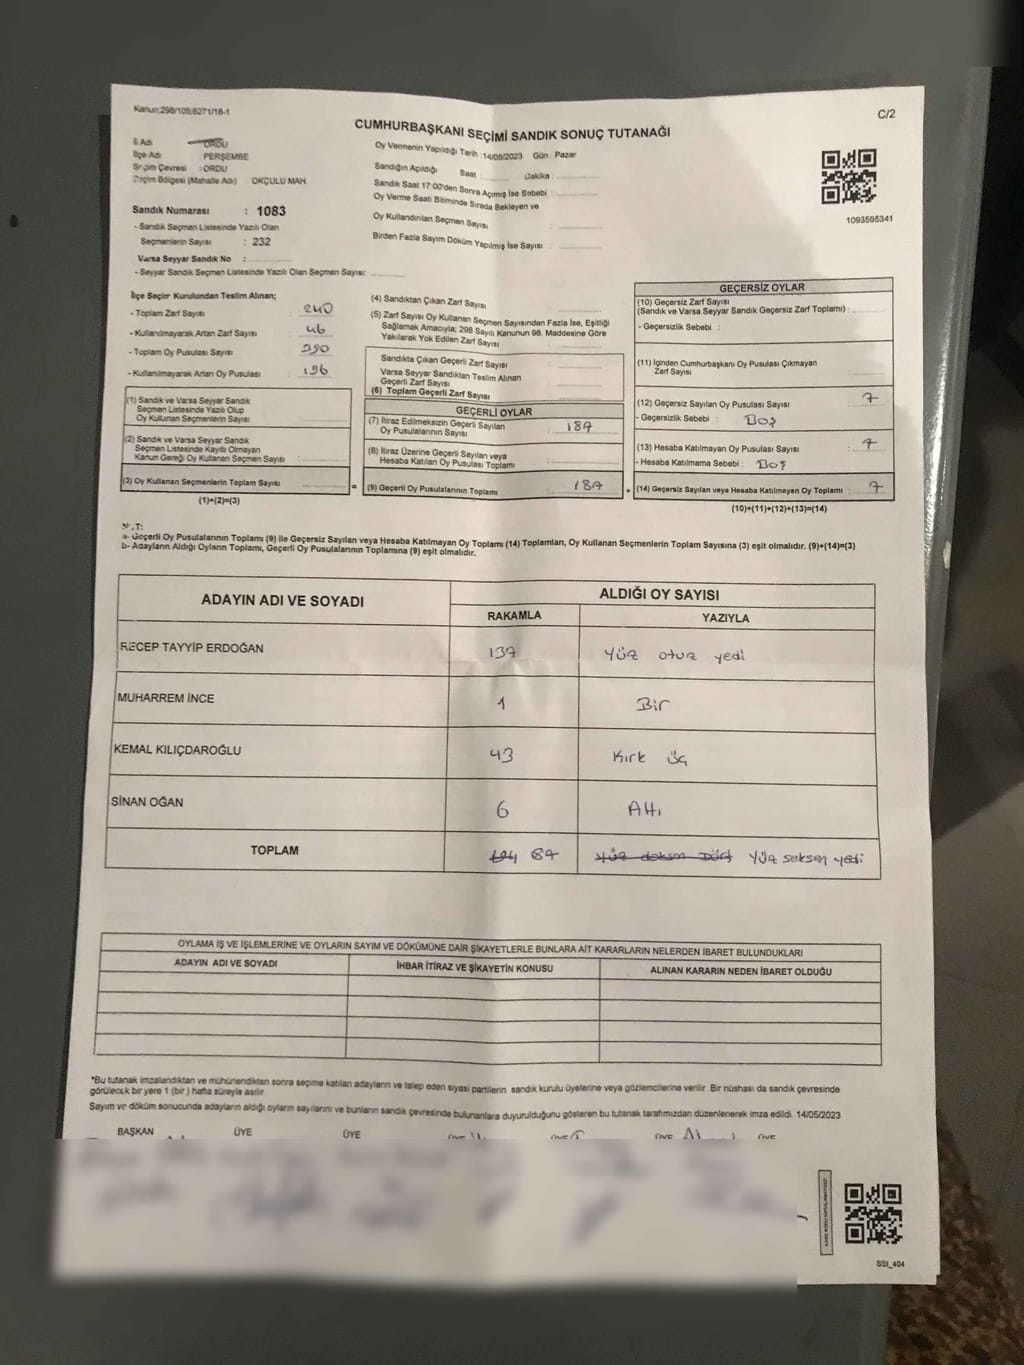 Kanun:298/108;6271/18-1
C/2
CUMHURBAŞKANI SEÇİMİ SANDIK SONUÇ TUTANAĞI
İl Adı ORDU
İlçe Adı PERŞEMBE
Seçim Çevresi : ORDU
Seçim Bölgesi (Mahalle Adı) OKÇULU MAH.
Sandık Numarası : 1083
- Sandık Seçmen Listesinde Yazılı Olan
Seçmenlerin Sayısı : 232
Varsa Seyyar Sandık No :
- Seyyar Sandık Seçmen Listesinde Yazılı Olan Seçmen Sayısı:
Oy Vermenin Yapıldığı Tarih :14/05/2023 Gün : Pazar
Sandığın Açıldığı Saat Dakika :
Sandık Saat 17:00'den Sonra Açımış İse Sebebi :
Oy Verme Saati Bitiminde Sırada Bekleyen ve
Oy Kullandırılan Seçmen Sayısı :
Birden Fazla Sayım Döküm Yapılmış İse Sayısı :
1093595341
İlçe Seçim Kurulundan Teslim Alınan;
- Toplam Zarf Sayısı : 240
- Kullanılmayarak Artan Zarf Sayısı : 46
- Toplam Oy Pusulası Sayısı : 390
- Kullanılmayarak Artan Oy Pusulası : 196
(1) Sandık ve Varsa Seyyar Sandık
Seçmen Listesinde Yazılı Olup
Oy Kullanan Seçmenlerin Sayısı :
(2) Sandık ve Varsa Seyyar Sandık
Seçmen Listesinde Kayıtlı Olmayan
Kanun Gereği Oy Kullanan Seçmen Sayısı :
(3) Oy Kullanan Seçmenlerin Toplam Sayısı :
(1)+(2)=(3)
(4) Sandıktan Çıkan Zarf Sayısı :
(5) Zarf Sayısı Oy Kullanan Seçmen Sayısından Fazla İse, Eşitliği
Sağlamak Amacıyla; 298 Sayılı Kanunun 98. Maddesine Göre
Yakılarak Yok Edilen Zarf Sayısı :
Sandıkta Çıkan Geçerli Zarf Sayısı :
Varsa Seyyar Sandıktan Teslim Alınan
Geçerli Zarf Sayısı :
(6) Toplam Geçerli Zarf Sayısı :
GEÇERLİ OYLAR
(7) İtiraz Edilmeksizin Geçerli Sayılan
Oy Pusulalarının Sayısı : 187
(8) İtiraz Üzerine Geçerli Sayılan veya
Hesaba Katılan Oy Pusulası Toplamı :
= (9) Geçerli Oy Pusulalarının Toplamı : 187 +
GEÇERSİZ OYLAR
(10) Geçersiz Zarf Sayısı
(Sandık ve Varsa Seyyar Sandık Geçersiz Zarf Toplamı) :
- Geçersizlik Sebebi :
(11) İçinden Cumhurbaşkanı Oy Pusulası Çıkmayan
Zarf Sayısı :
(12) Geçersiz Sayılan Oy Pusulası Sayısı : 7
- Geçersizlik Sebebi : Boş
(13) Hesaba Katılmayan Oy Pusulası Sayısı : 7
- Hesaba Katılmama Sebebi : Boş
(14) Geçersiz Sayılan veya Hesaba Katılmayan Oy Toplamı : 7
(10)+(11)+(12)+(13)=(14)
a- Geçerli Oy Pusulalarının Toplamı (9) ile Geçersiz Sayılan veya Hesaba Katılmayan Oy Toplamı (14) Toplamları, Oy Kullanan Seçmenlerin Toplam Sayısına (3) eşit olmalıdır. (9)+(14)=(3)
b- Adayların Aldığı Oyların Toplamı, Geçerli Oy Pusulalarının Toplamına (9) eşit olmalıdır.
ADAYIN ADI VE SOYADI
ALDIĞI OY SAYISI
RAKAMLA YAZIYLA
RECEP TAYYİP ERDOĞAN 137 Yüz otuz yedi
MUHARREM İNCE 1 Bir
KEMAL KILIÇDAROĞLU 43 Kırk üç
SİNAN OĞAN 6 Altı
TOPLAM 194 87 Yüz doksan Dört Yüz seksen yedi
OYLAMA İŞ VE İŞLEMLERİNE VE OYLARIN SAYIM VE DÖKÜMÜNE DAİR ŞİKAYETLERLE BUNLARA AİT KARARLARIN NELERDEN İBARET BULUNDUKLARI
ADAYIN ADI VE SOYADI İHBAR İTİRAZ VE ŞİKAYETİN KONUSU ALINAN KARARIN NEDEN İBARET OLDUĞU
*Bu tutanak imzalandıktan ve mühürlendikten sonra seçime katılan adayların ve talep eden siyasi partilerin sandık kurulu üyelerine veya gözlemcilerine verilir .Bir nüshası da sandık çevresinde
görülecek bir yere 1 (bir ) hafta süreyle asılır
Sayım ve döküm sonucunda adayların aldığı oyların sayılarını ve bunların sandık çevresinde bulunanlara duyurulduğunu gösteren bu tutanak tarafımızdan düzenlenerek imza edildi. 14/05/2023
BAŞKAN ÜYE ÜYE ÜYE ÜYE ÜYE ÜYE
SSI_404